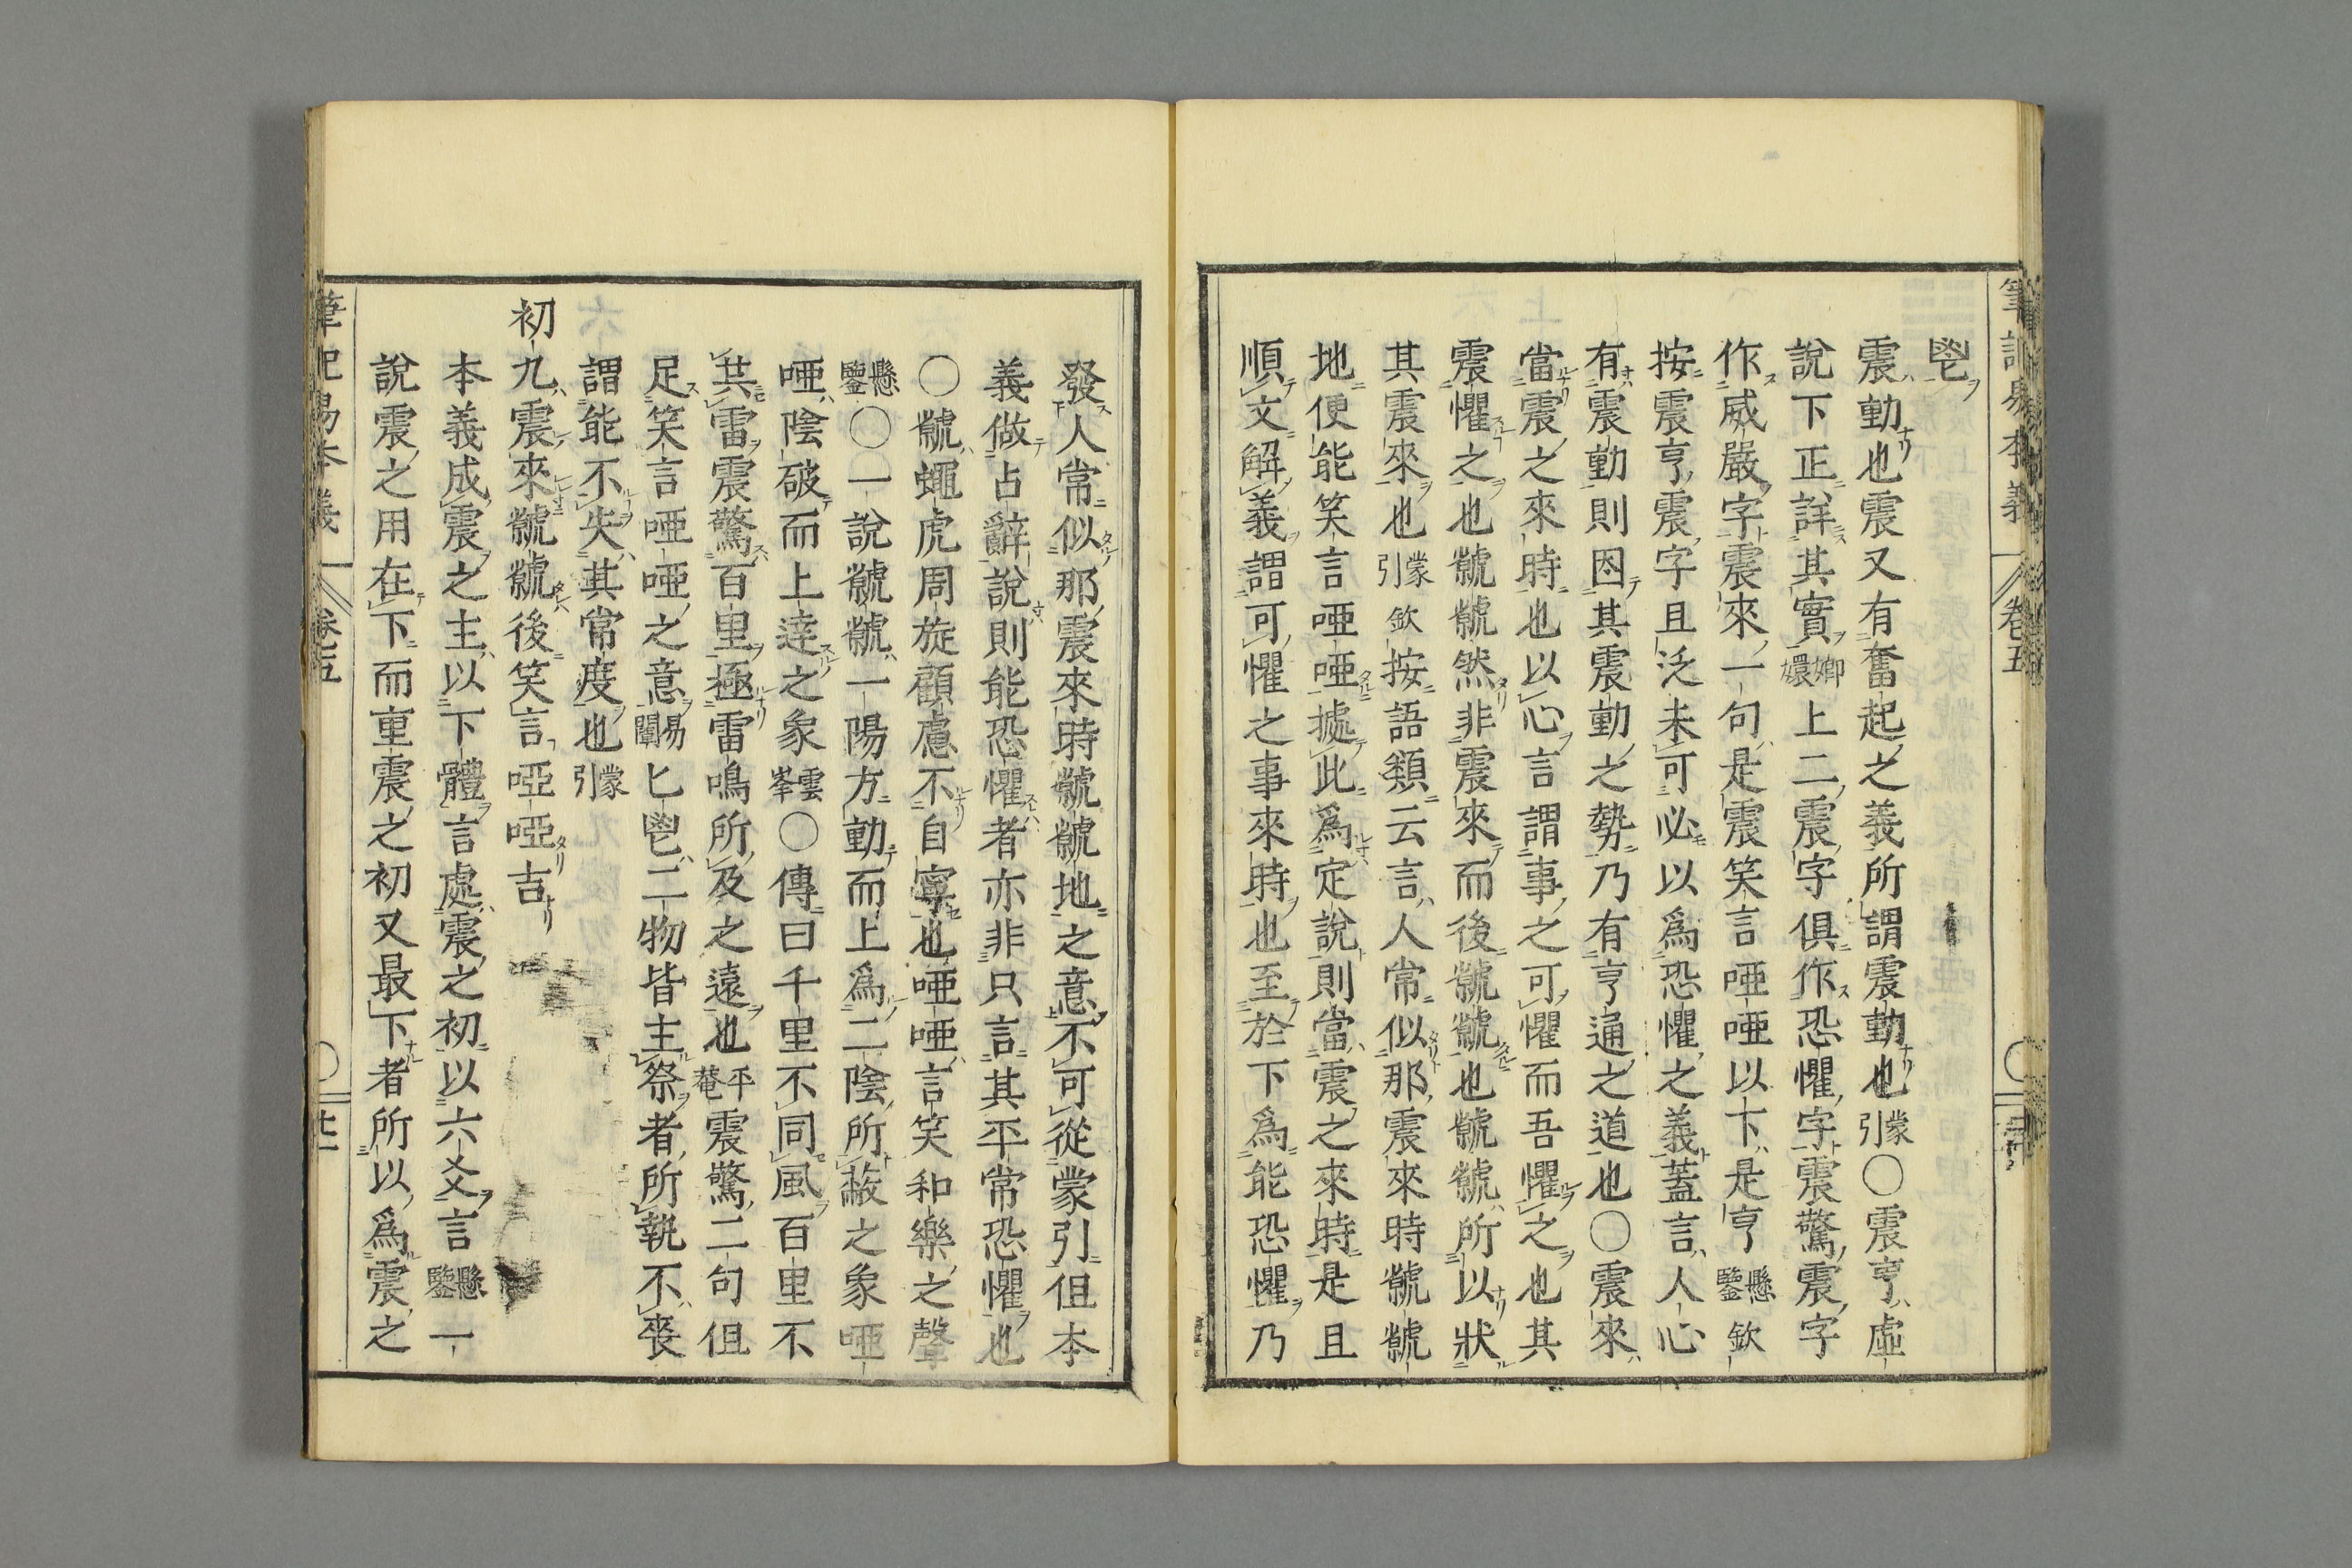 筆記易本義 卷五
鬯
震動也震又有奮起之義所謂震動也蒙引〇震亨虛
說下正詳其實嫏嬛上二震字俱作恐懼字震驚震字
作威嚴字震來一句是震笑言啞啞以下是亨懸鑒欽
按震亨震字且泛未可必以爲恐懼之義蓋言人心
有震動則因其震動之勢乃有亨通之道也〇震來
當震之來時也以心言謂事之可懼而吾懼之也其
震懼之也虩虩然非震來而後虩虩也虩虩所以狀
其震來也蒙引欽按語類云言人常似那震來時虩虩
地便能笑言啞啞據此爲定說則當震之來時是且
順文解義謂可懼之事來時也至於下爲能恐懼乃
發人常似那震來時虩虩地之意不可從蒙引但本
義做占辭說則能恐懼者亦非只言其平常恐懼也
〇虩蠅虎周旋顧慮不自寧也啞啞言笑和樂之聲
懸鑒〇一說虩虩一陽方動而上爲二陰所蔽之象啞
啞陰破而上達之象雲峯〇傳曰千里不同風百里不
共雷震驚百里極雷鳴所及之遠也平菴震驚二句但
足笑言啞啞之意易闡匕鬯二物皆主祭者所執不喪
謂能不失其常度也蒙引
初九震來虩虩後笑言啞啞吉
本義成震之主以下體言處震之初以六爻言懸鑒一
說震之用在下而重震之初又最下者所以爲震之
筆記易本義 卷五